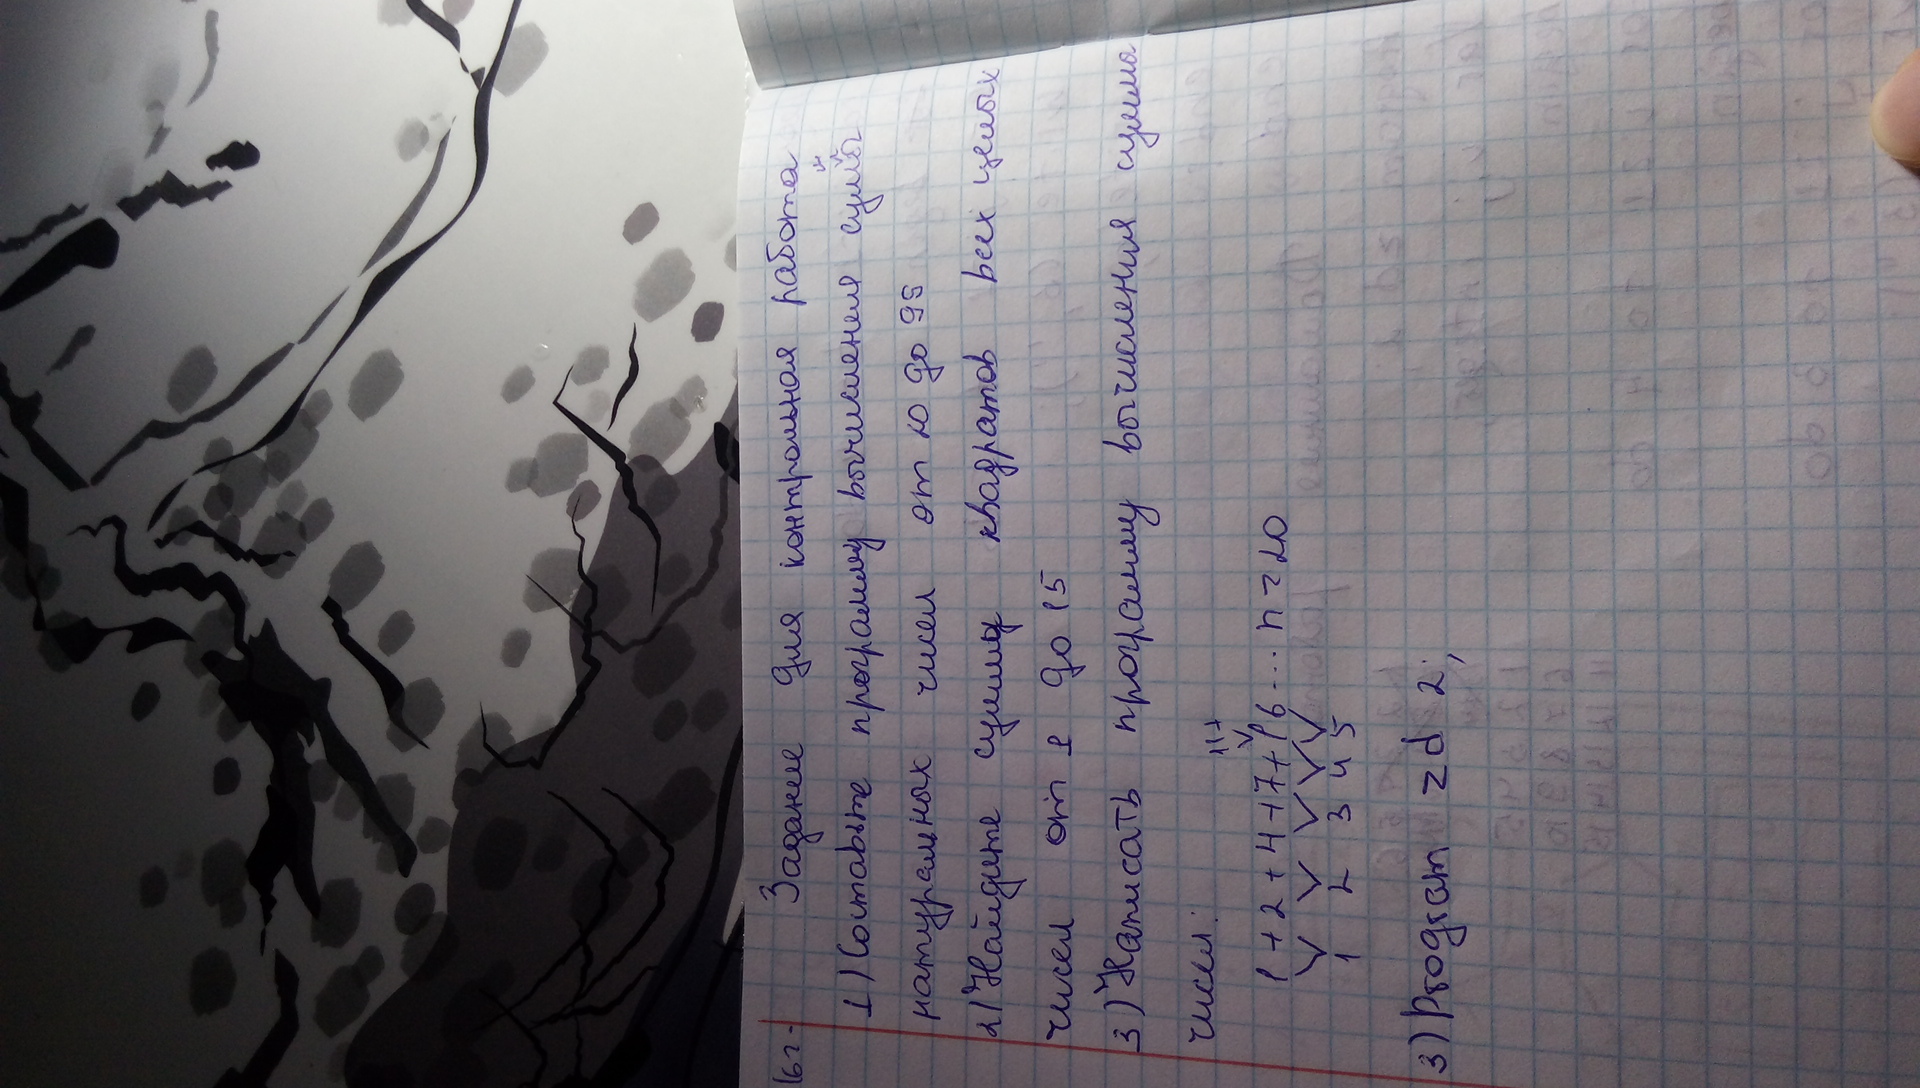 Задание для контрольная работа
1) Составьте программу вычисления суммы
натуральных чисел от 20 до 95
2) Найдите сумму квадратов всех целых
чисел от 1 до 15
3) Написать программу вычисления сумма
чисел:
11+
1 + 2 + 4 + 7 + 16 ... n = 20
1 2 3 4 5
3) Program zd 2;